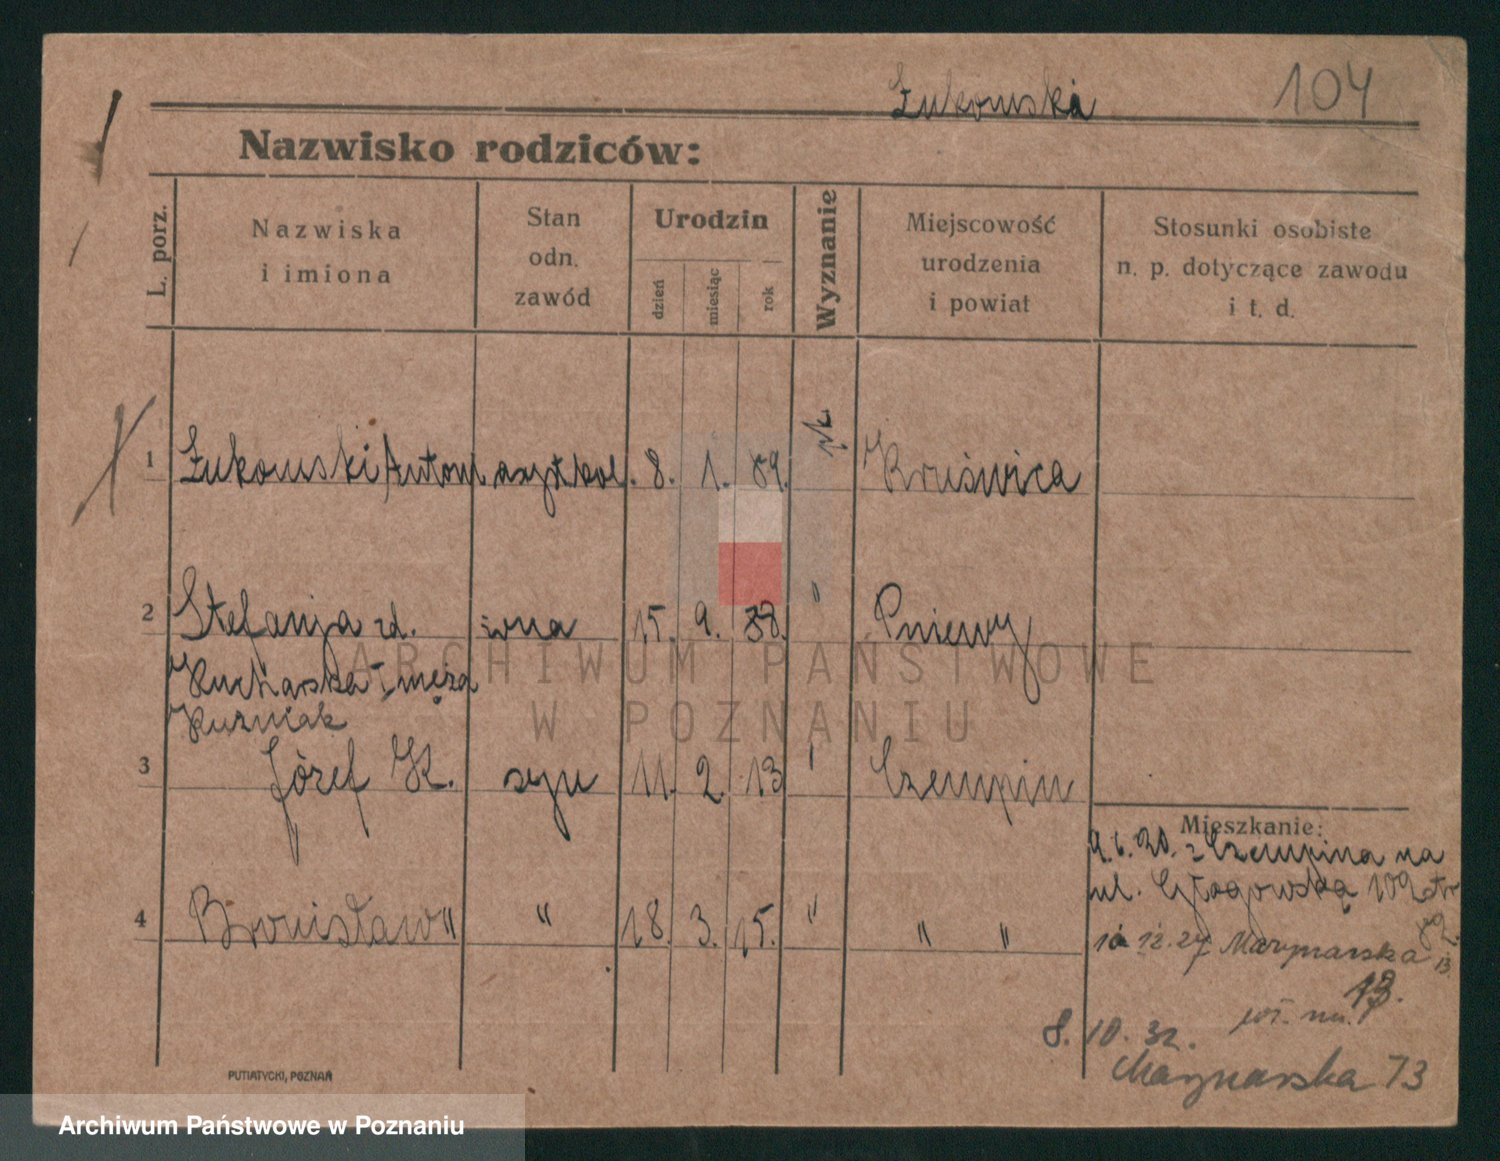 Żukowski
104
Nazwisko rodziców:
L. porz.
Nazwiska
i imiona
Stan
odn.
zawód
Urodzin
dzień
miesiąc
rok
Wyznanie
Miejscowość
urodzenia
i powiat
Stosunki osobiste
n. p. dotyczące zawodu
i t. d.
1 Żukowski Antoni asyst kol. 8. 1. 89. rk. Kruświca
2 Stefania zd. żona 15. 9. 88. " Pniewy
Kucharska I męża
Kuźniak
3 Józef K. syn 11. 2. 13 " Czempin
4 Bronisław " " 18. 3. 15. " " "
Mieszkanie:
9.6.20. z Czempina na
ul. Głogowską 109
12.27 Marynarska
13.
8.10.32.
Marynarska 73
PUTIATYCKI, POZNAŃ
ARCHIWUM PAŃSTWOWE
W POZNANIU
Archiwum Państwowe w Poznaniu